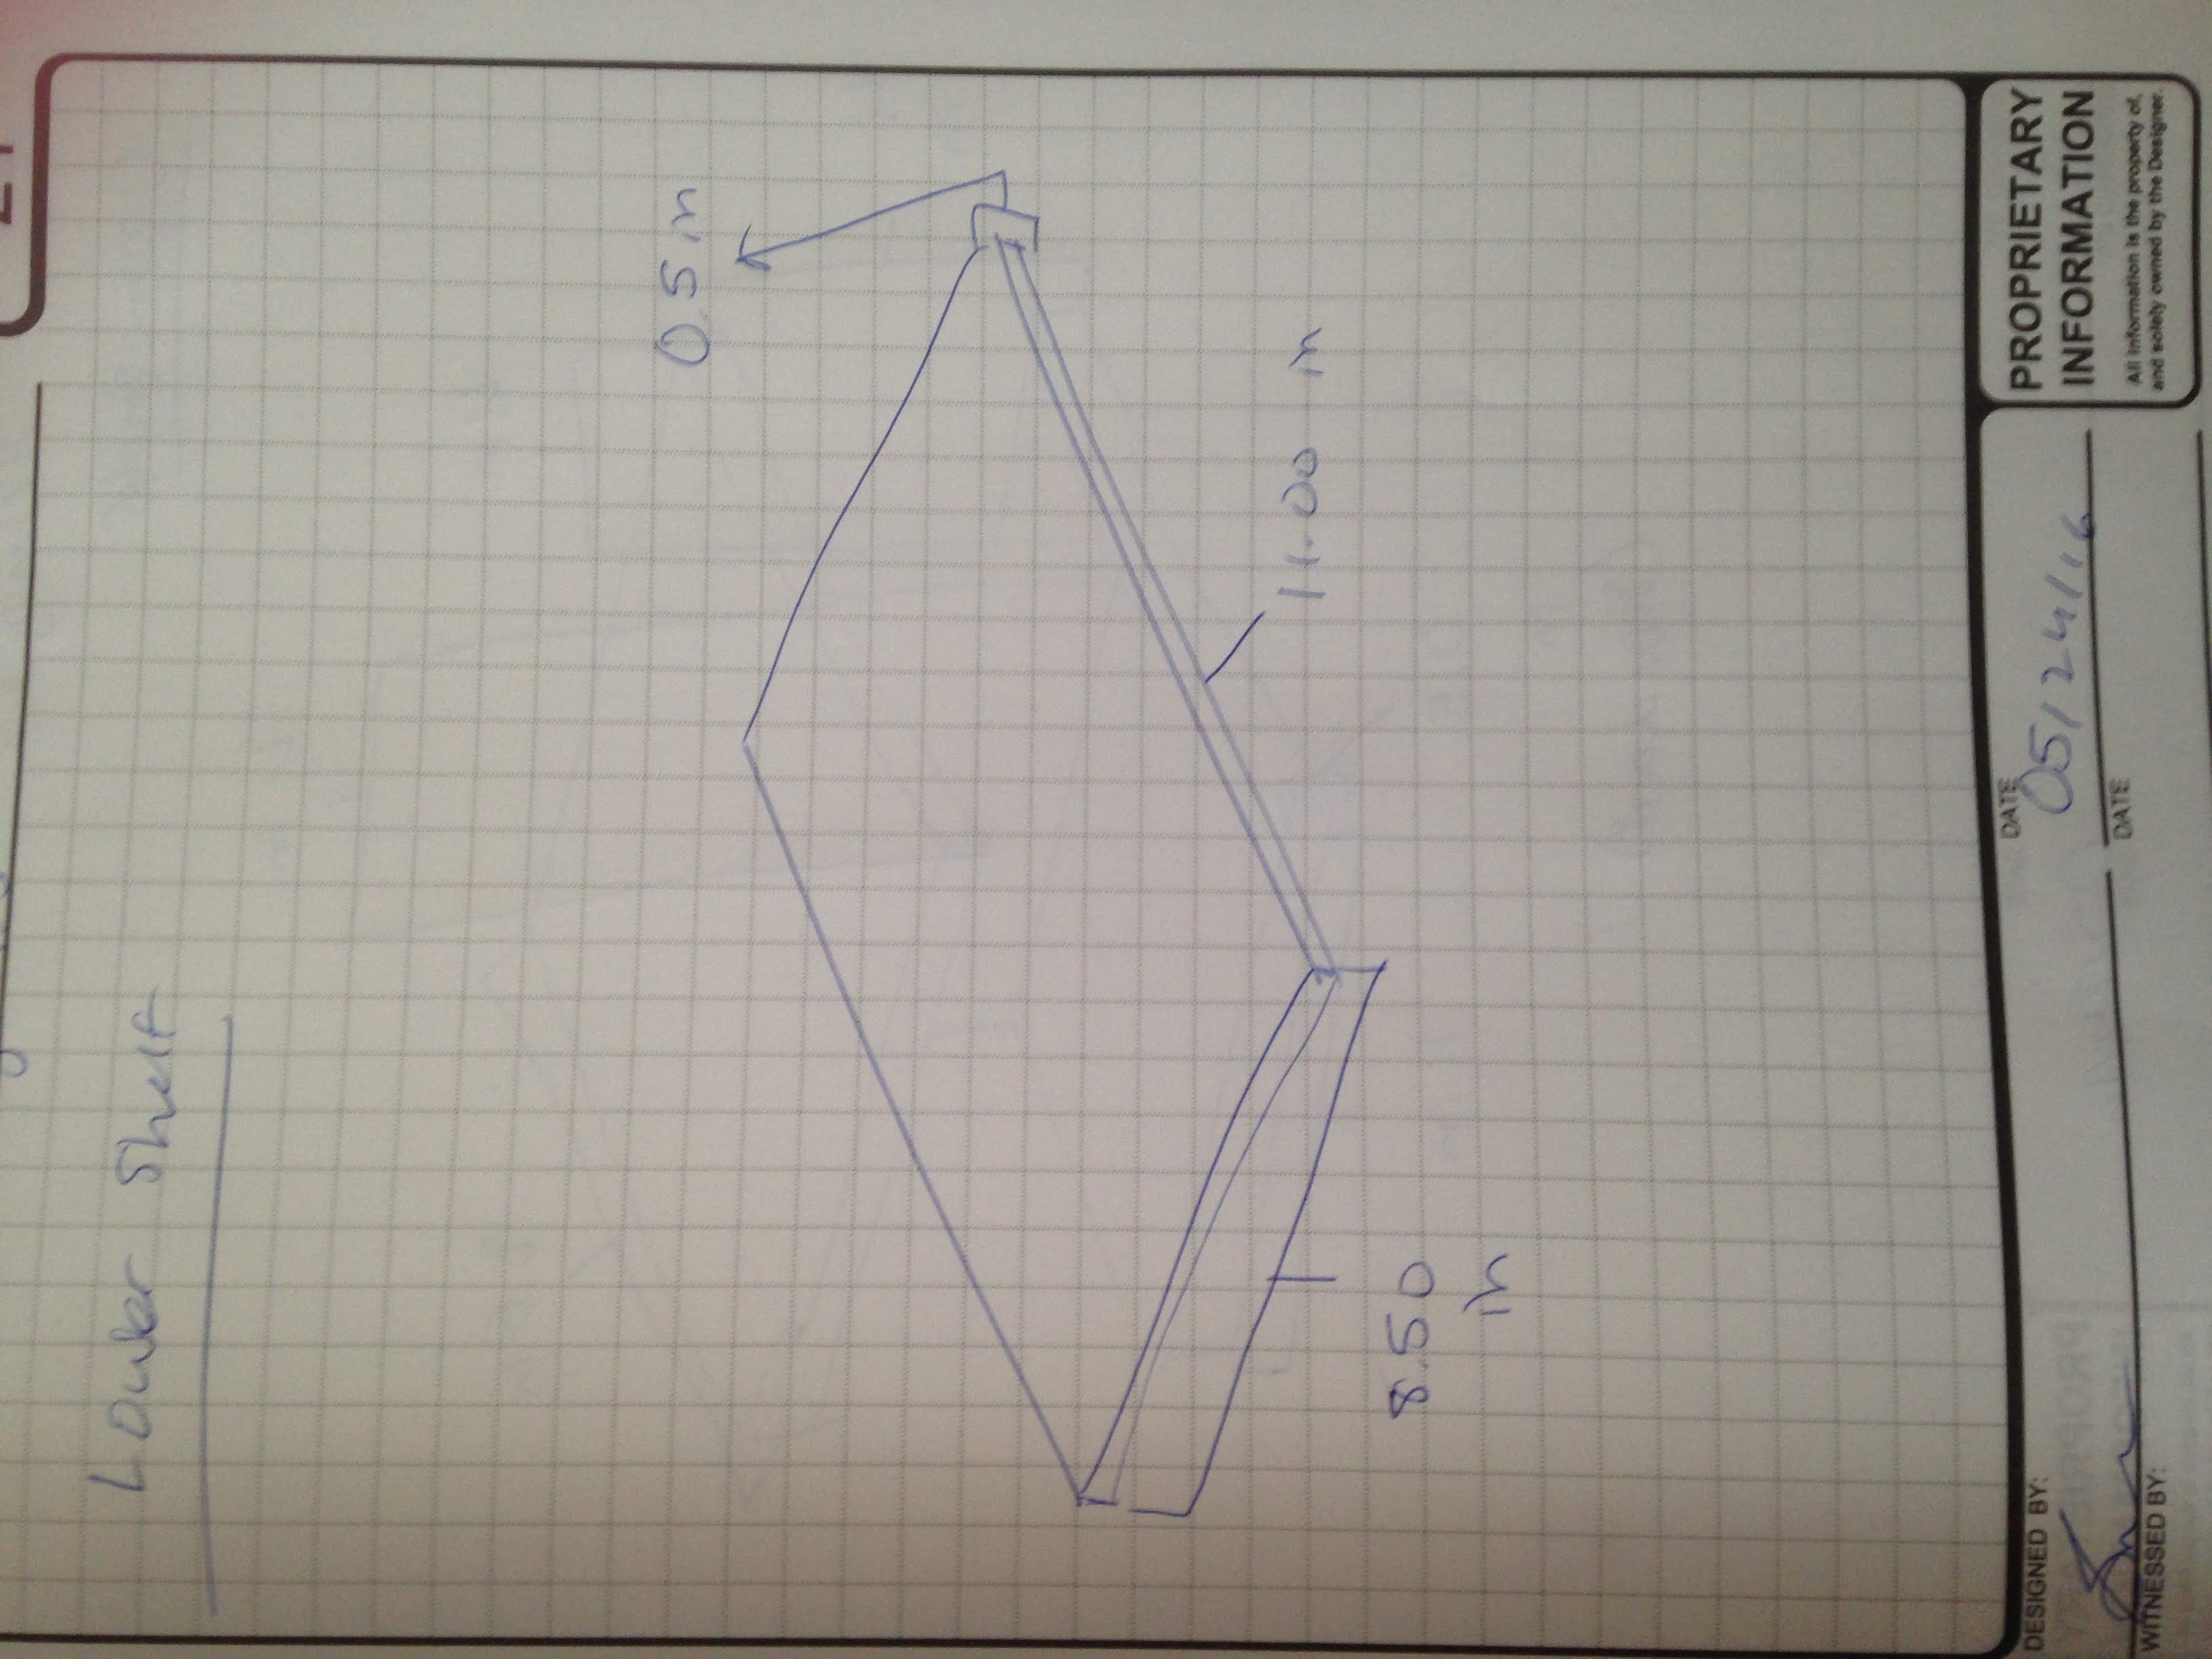 Lower Shelf
0.5 in
11.00 in
8.50
in
DESIGNED BY:
DATE
05/24/16
WITNESSED BY:
DATE
PROPRIETARY
INFORMATION
All information is the property of,
and solely owned by the Designer.